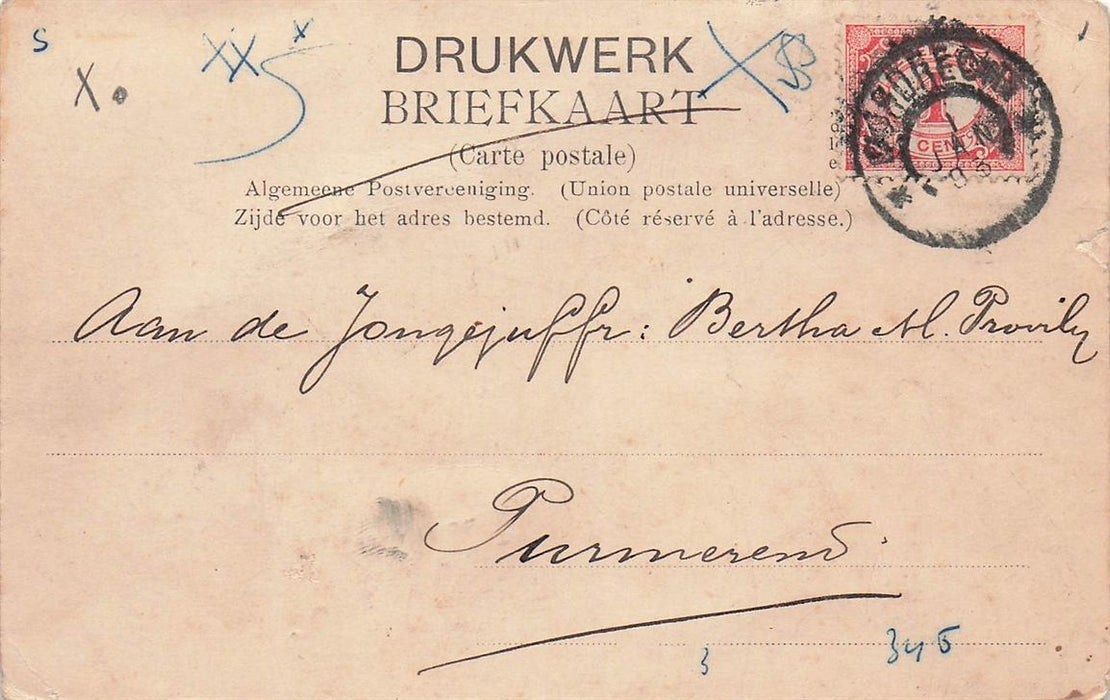 S
XX 5 x
X.
DRUKWERK
BRIEFKAART
(Carte postale)
Algemeene Postvereeniging. (Union postale universelle)
Zijde voor het adres bestemd. (Côté réservé à l'adresse.)
1
CENT
1 JAN
03
Aan de Jongejuffr: Bertha M. Provily
Purmerend.
3
345